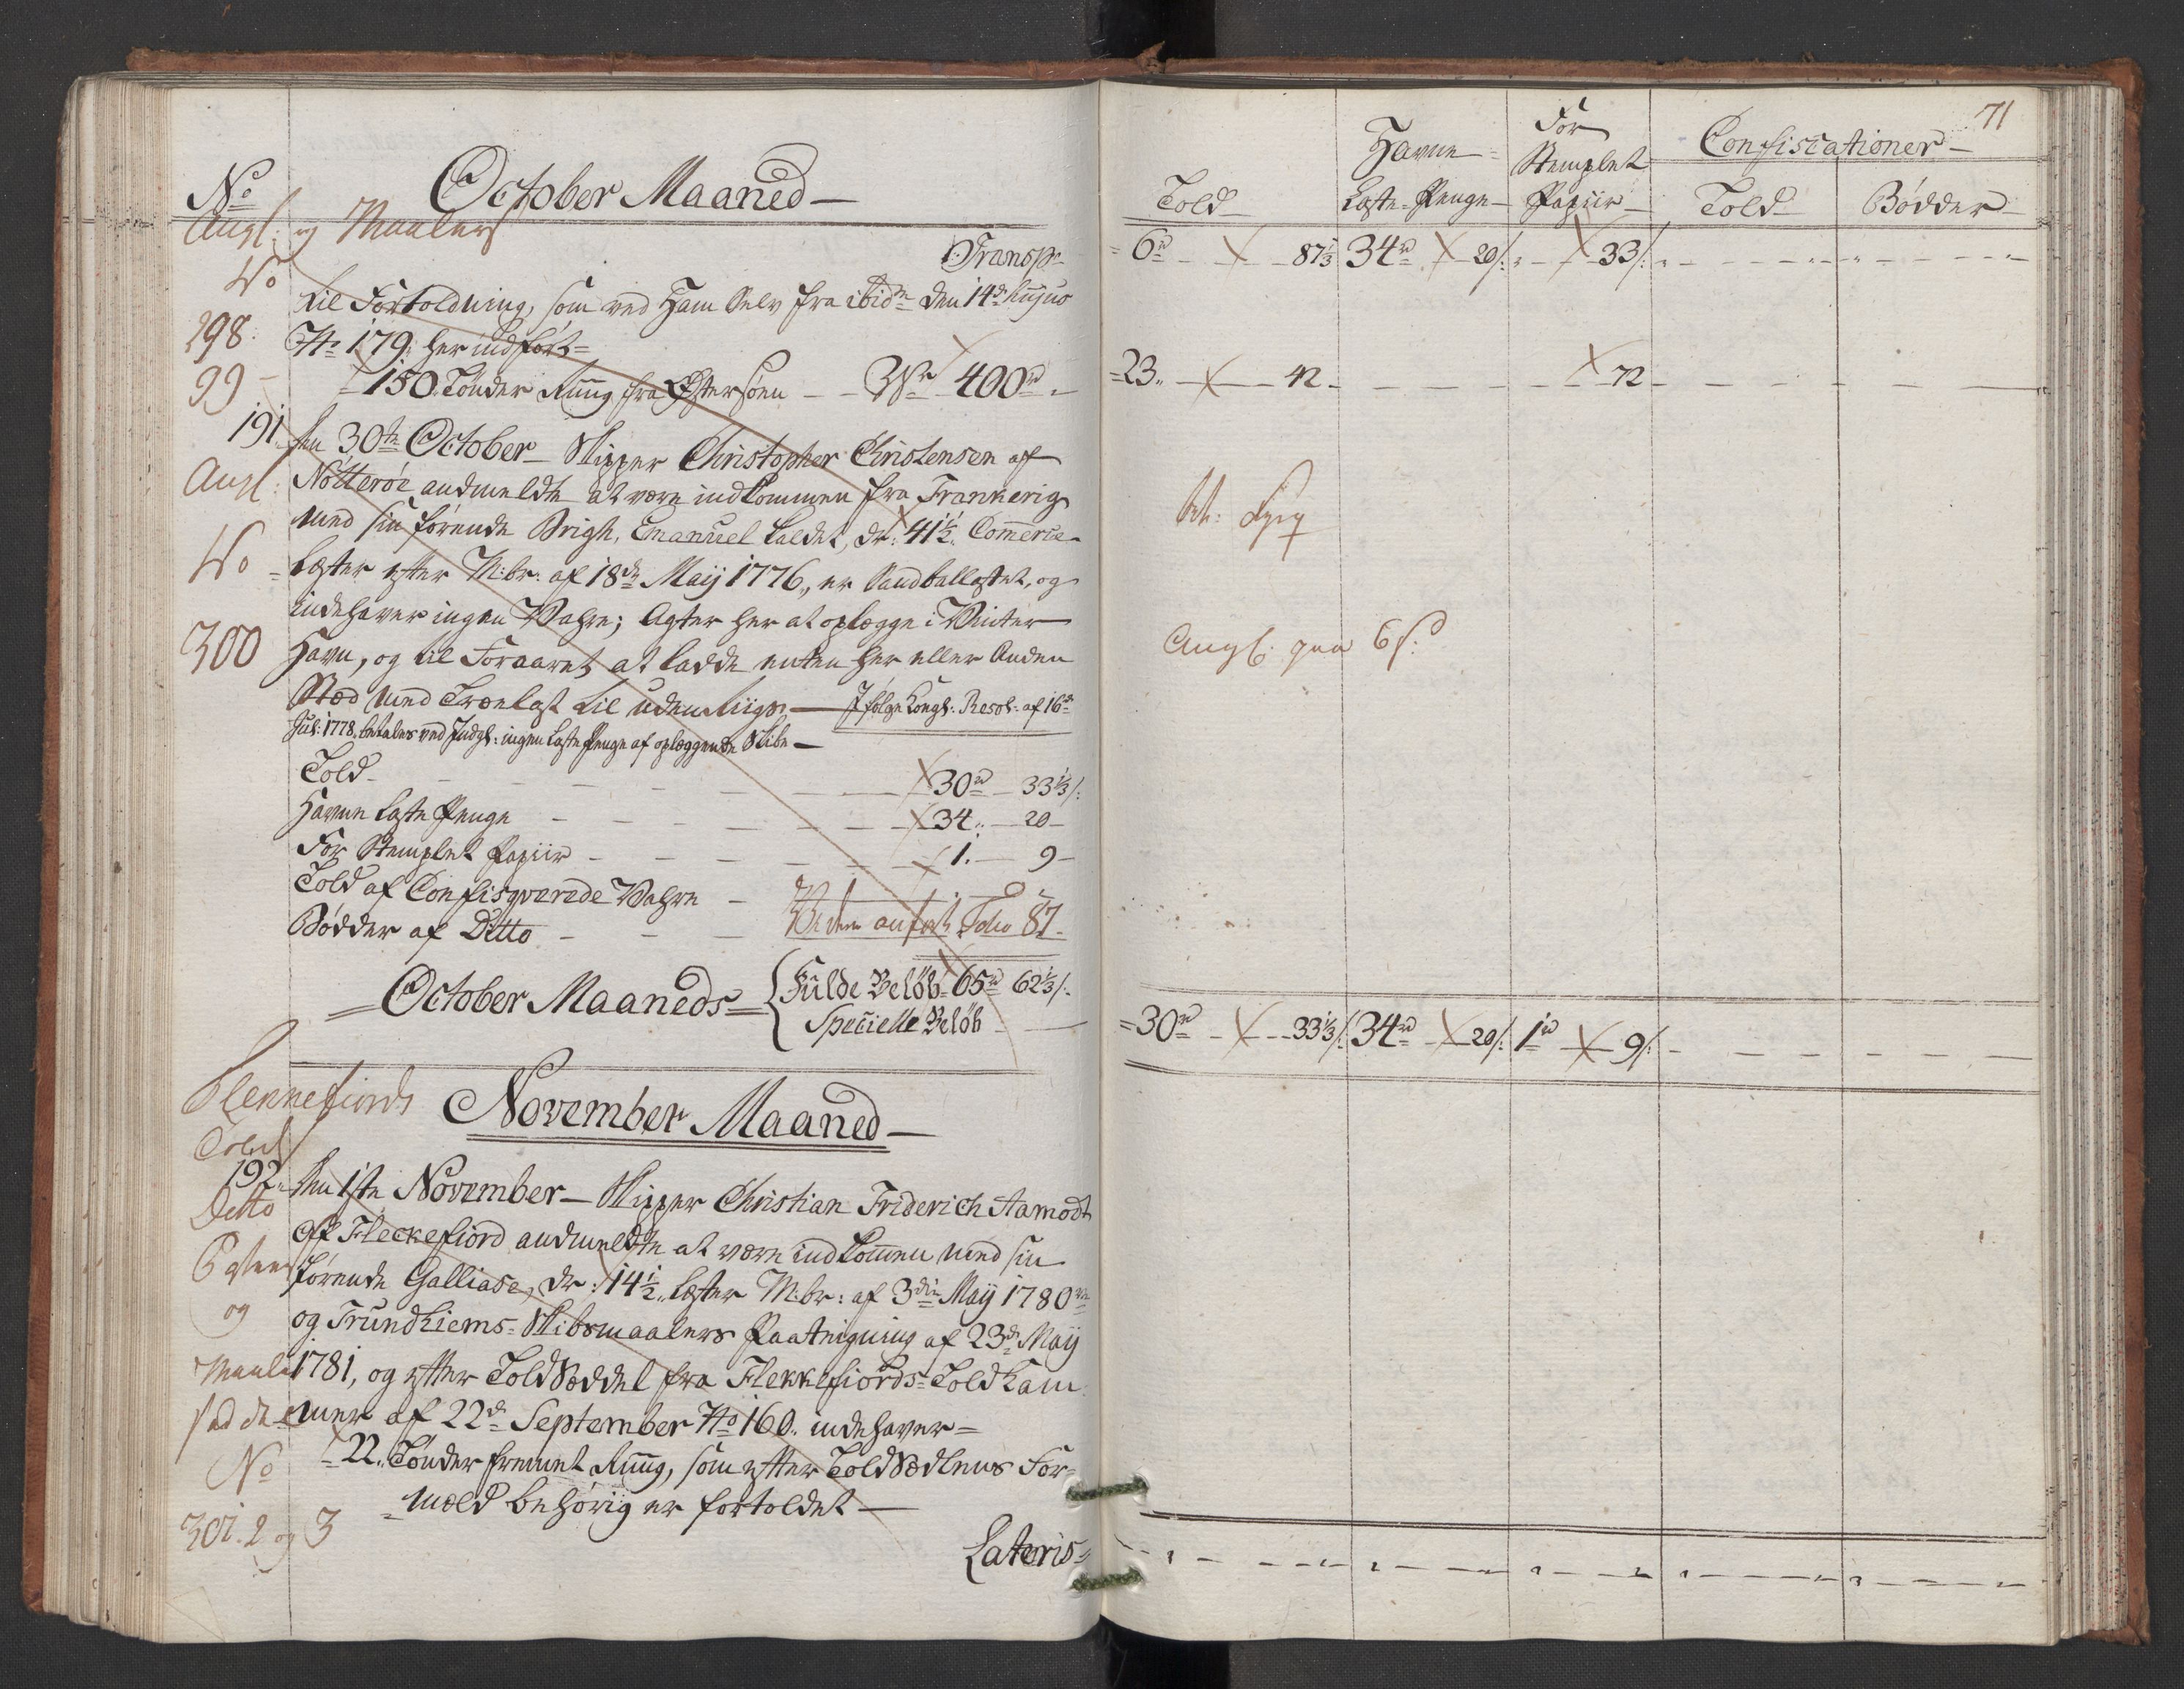 No
October Maaned
Angl: og Maalers
Transp:
No
til Fortoldning, som ved Ham Selv fra ibidm den 14de hujus
298.
No 179. her indført=
99
150. Tønder Ruug fra Østersøen - Vr 400rd
191. den 30te October Skipper Christopher Christensen af
Angl:
Nötterøe anmeldte at være indkommen fra Frankerig
med sin førende Brigh, Emanuel kaldet, dr: 41½. Commerce
No
Læster efter M:br: af 18de Maij 1776, er Sandballastet, og
indehaver ingen Vahre; Agter her at oplægge i Vinter
300
Havn, og til Foraaret at ladde enten her eller Anden
Stæd med Trælast til udenriigs - Ifølge Kongl: Resol: af 16de
Juli: 1778. betales ved Indgl: ingen Læste Penge af oplæggende Skibe
Told - 30rd - 33⅓s:
Havne Læste Penge - 34 - 20
For Stemplet Papiir - 1. - 9
Told af Confisqverede Vahre -
Bødder af Ditto - anført Folio 87
October Maaneds
Fulde Beløb 65rd 62⅓s:
Specielle Beløb
Flekkefiords
November Maaned
Told
192. den 1ste November Skipper Christian Friderich Aamodt
Ditto
af Fleckefiord anmeldte at være indkommen med sin
førende Galliase, dr: 14½. Læster M:br: af 3die Maij 1780
og
og Trundhiems Skibsmaalers Paategning af 23de Maij
Maale
1781, og efter Toldseddel fra Flekkefiords Toldkam
mer af 22de September No 160. indehaver=
No
22. Tønder fremmet Ruug, som efter Toldsedlens For=
mæld behørig er fortoldet
301. 2 og 3
Lateris
71
Told
Havne Læste-Penge
For Stemplet Papiir
Confiscationer
Told
Bødder
6rd 87⅓ 34rd 20s: 33s:
23. 42 72
Angl. 6s:
30rd 33⅓s: 34rd 20s: 1rd 9s: